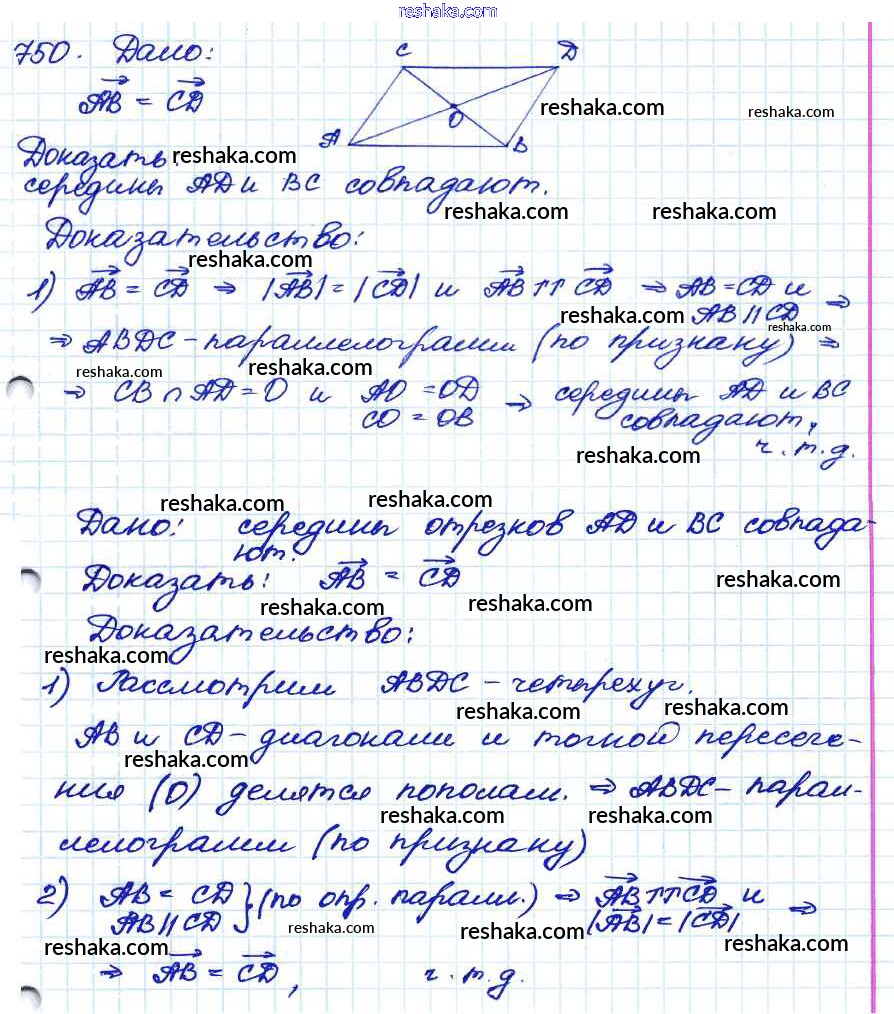 reshaka.com
750. Дано:
C D
AB = CD
O
A B
reshaka.com reshaka.com
Доказать: reshaka.com
середины AD и BC совпадают.
reshaka.com reshaka.com
Доказательство:
reshaka.com
1) AB = CD ⇒ |AB| = |CD| и AB ⇈ CD ⇒ AB = CD и
reshaka.com AB || CD ⇒
reshaka.com
⇒ ABDC - параллелограмм (по признаку) ⇒
reshaka.com reshaka.com
⇒ CB ∩ AD = O и AO = OD ⇒ середины AD и BC
CO = OB совпадают,
ч.т.д.
reshaka.com
reshaka.com reshaka.com
Дано: середины отрезков AD и BC совпада-
ют.
Доказать: AB = CD reshaka.com
reshaka.com reshaka.com
Доказательство:
reshaka.com
1) Рассмотрим ABDC - четырехуг.
reshaka.com reshaka.com
AB и CD - диагонали и точкой пересече-
reshaka.com
ния (O) делятся пополам. ⇒ ABDC - парал-
reshaka.com reshaka.com
лелограмм (по признаку)
2) AB = CD } (по опр. паралл.) ⇒ AB ⇈ CD и
AB || CD |AB| = |CD| ⇒
reshaka.com reshaka.com reshaka.com reshaka.com
⇒ AB = CD, ч.т.д.